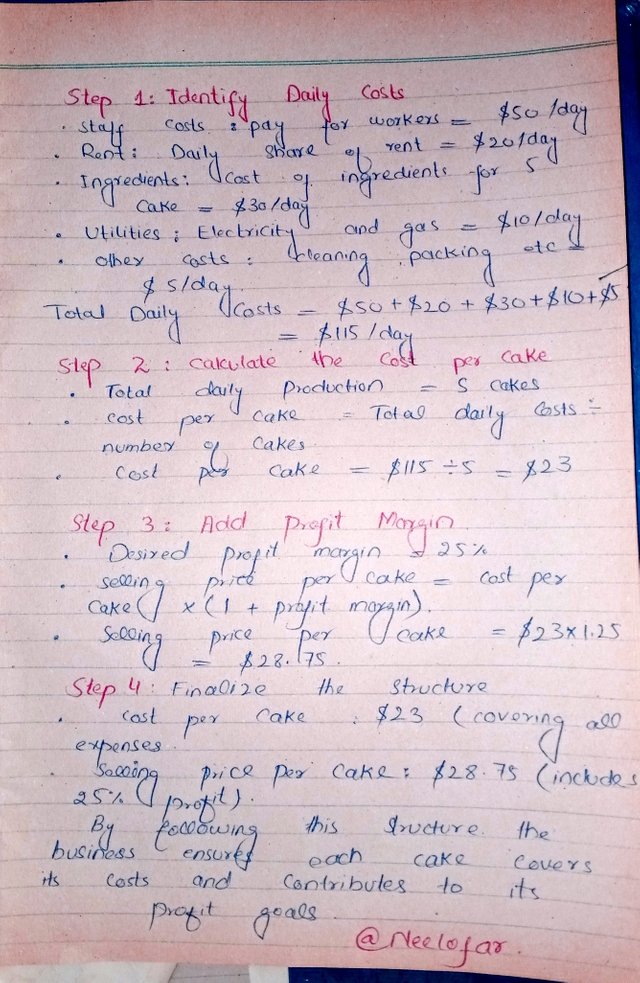 Step 1: Identify Daily Costs
• Staff costs : pay for workers = $50/day
• Rent : Daily share of rent = $20/day
• Ingredients: Cost of ingredients for 5
Cake = $30/day
• Utilities ; Electricity and gas = $10/day
• other costs : cleaning, packing etc =
$5/day.
Total Daily Costs = $50 + $20 + $30 + $10 + $5
= $115/day
Step 2 : calculate the Cost per cake
• Total daily Production = 5 cakes
• cost per cake = Total daily Costs ÷
number of Cakes.
• Cost per cake = $115 ÷ 5 = $23
Step 3 : Add Profit Margin
• Desired profit margin = 25%
• selling price per cake = cost per
Cake × (1 + profit margin).
• Selling price per cake = $23 × 1.25
= $28.75.
Step 4 : Finalize the Structure
• Cost per Cake : $23 (covering all
expenses.
• Selling price per Cake : $28.75 (includes
25% profit).
By following this structure. the
business ensures each cake covers
its costs and contributes to its
profit goals.
@Neelofar.